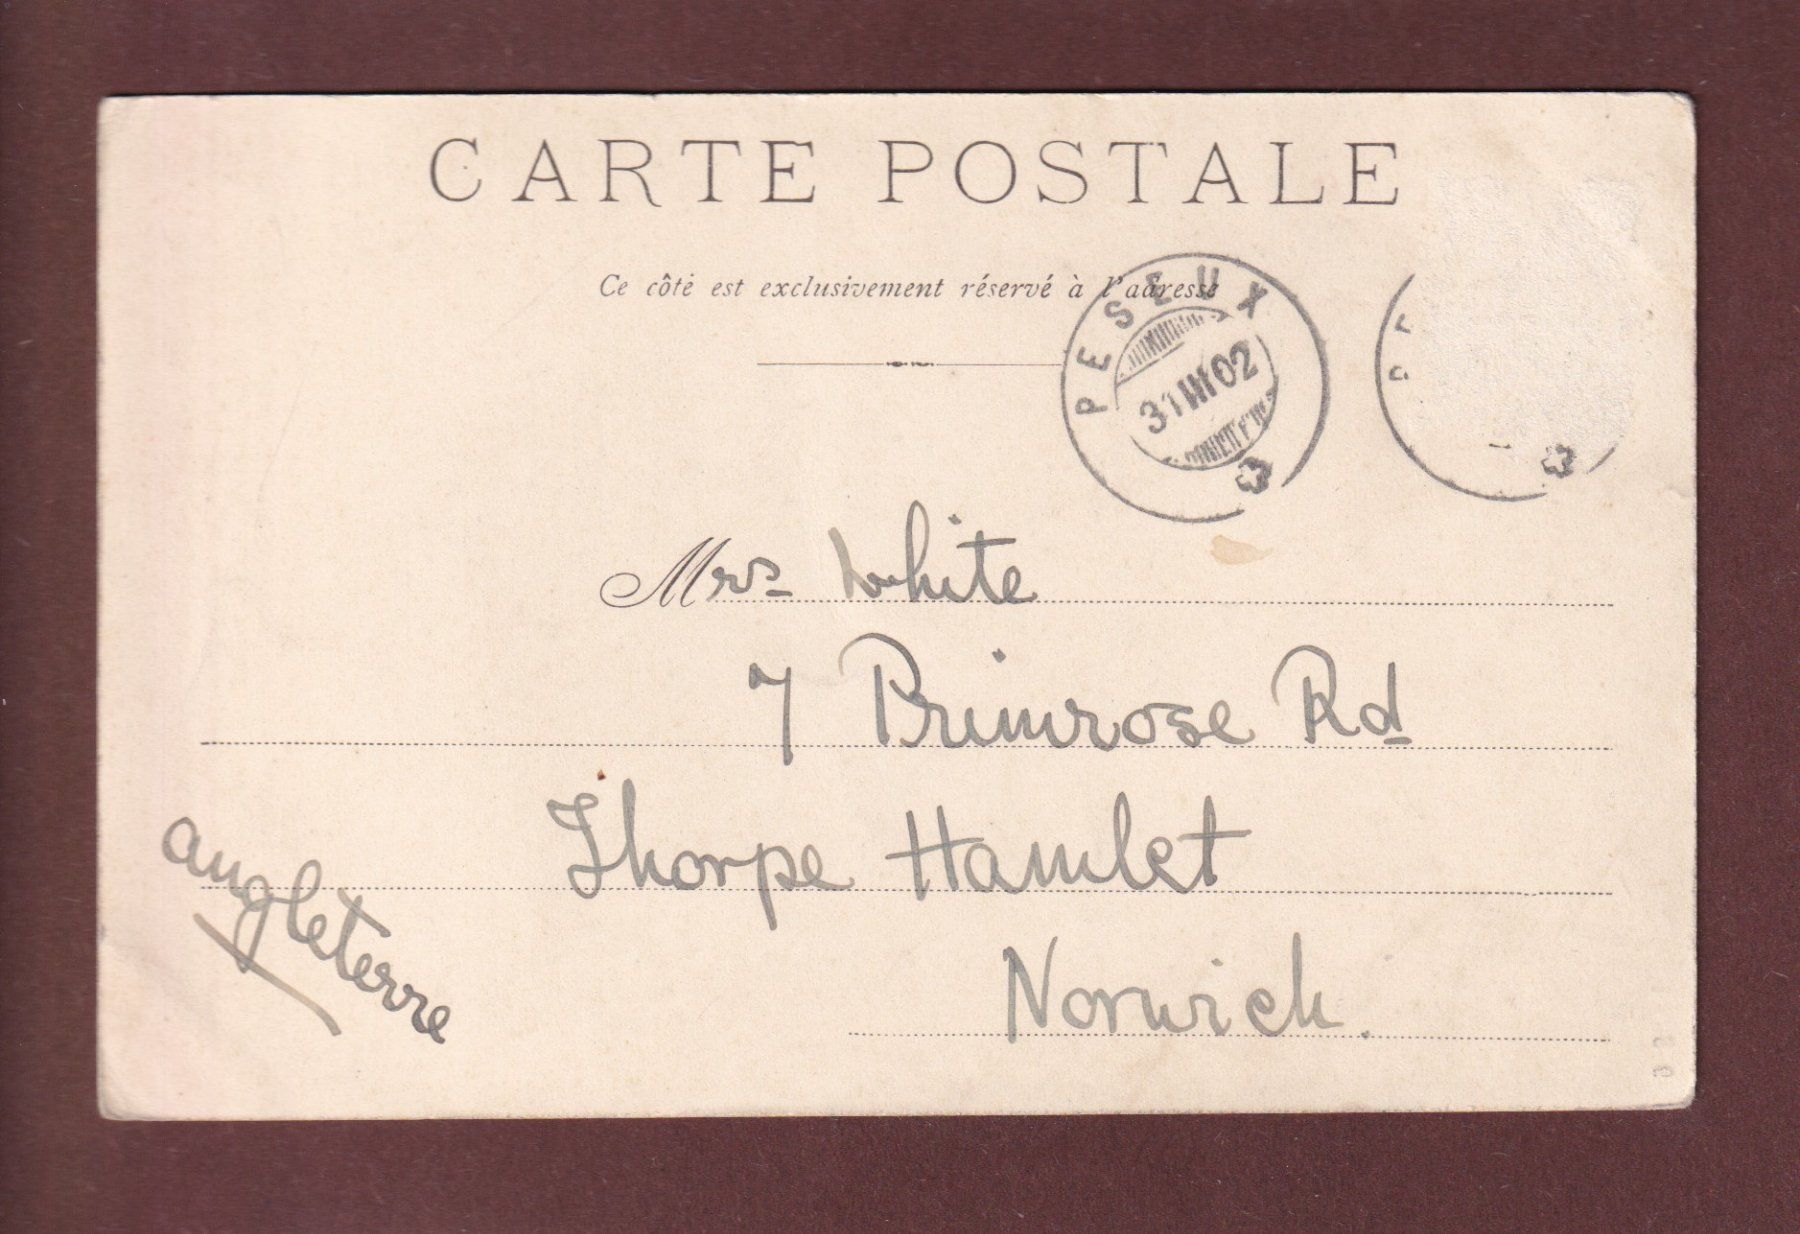 CARTE POSTALE
Ce côté est exclusivement réservé à l'adresse
PESEUX
31 III 02
Mrs White
7 Primrose Rd
Thorpe Hamlet
Norwich.
angleterre